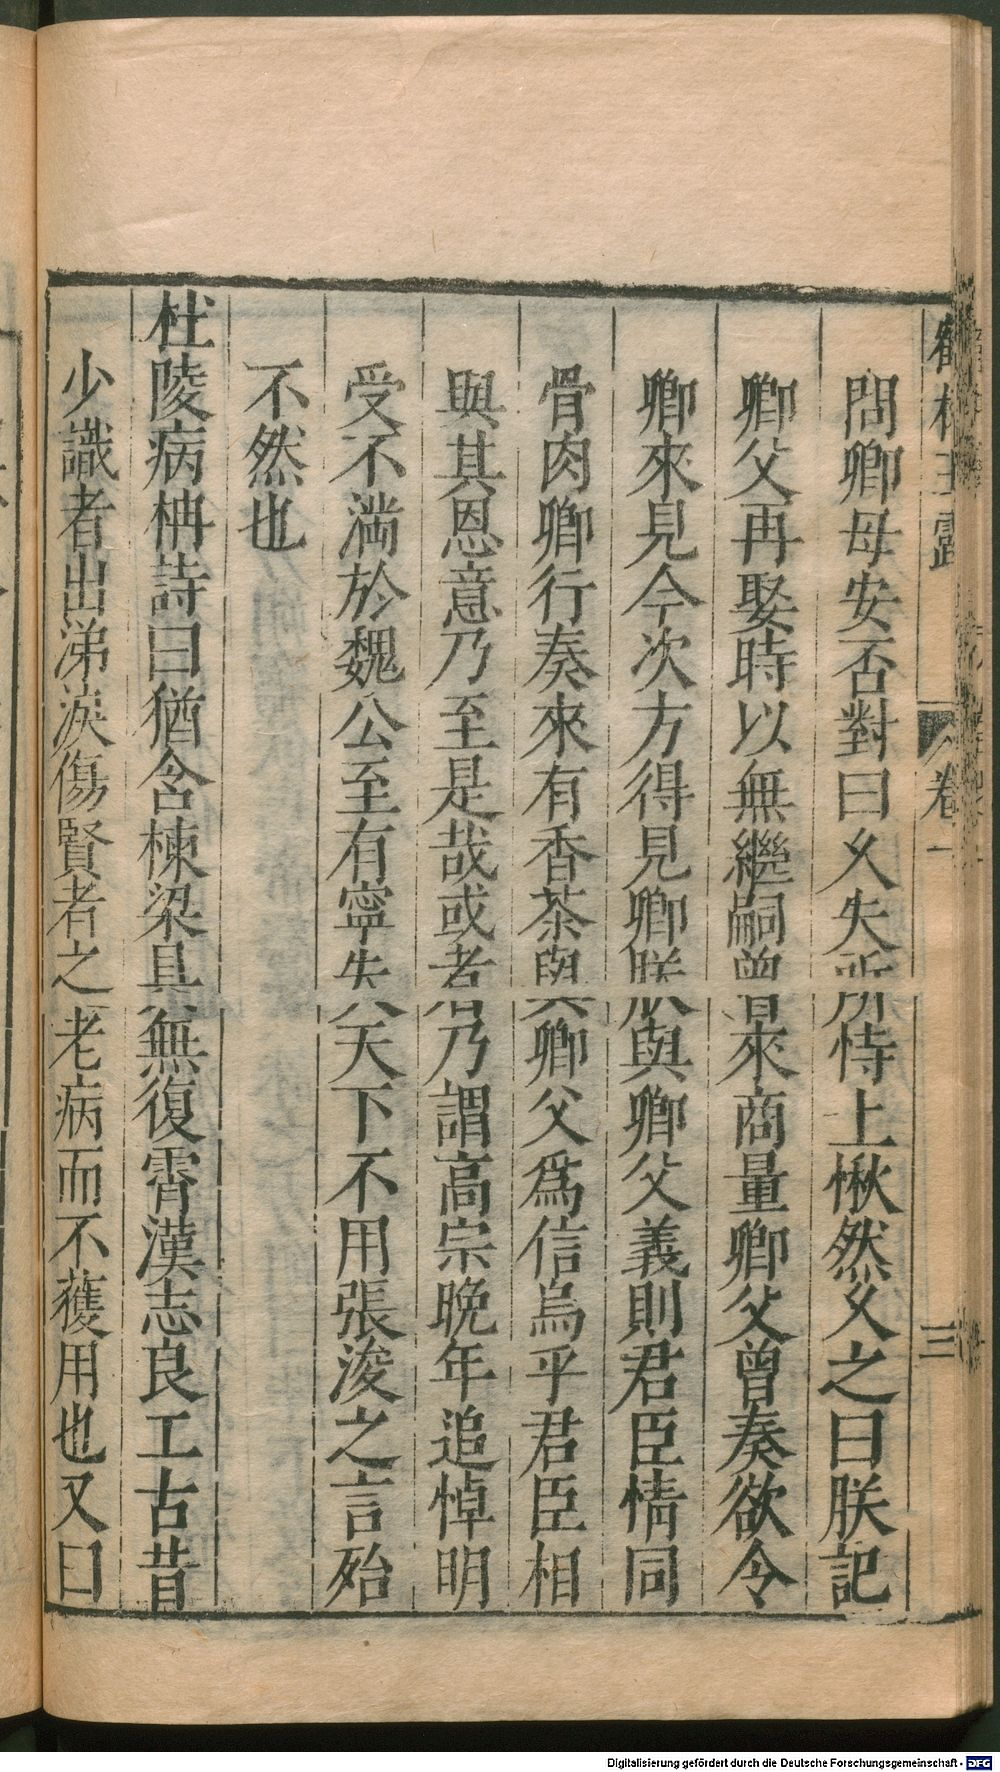 鶴林玉露 卷一 三
問卿母安否對曰久失所恃上愀然久之曰朕記
卿父再娶時以無繼嗣曾來商量卿父曾奏欲令
卿來見今次方得見卿朕與卿父義則君臣情同
骨肉卿行奏來有香茶與卿父爲信烏乎君臣相
與其恩意乃至是哉或者乃謂高宗晚年追悼明
受不滿於魏公至有寧失天下不用張浚之言殆
不然也
杜陵病柟詩曰猶含棟梁具無復霄漢志良工古昔
少識者出涕淚傷賢者之老病而不獲用也又曰
Digitalisierung gefördert durch die Deutsche Forschungsgemeinschaft - DFG